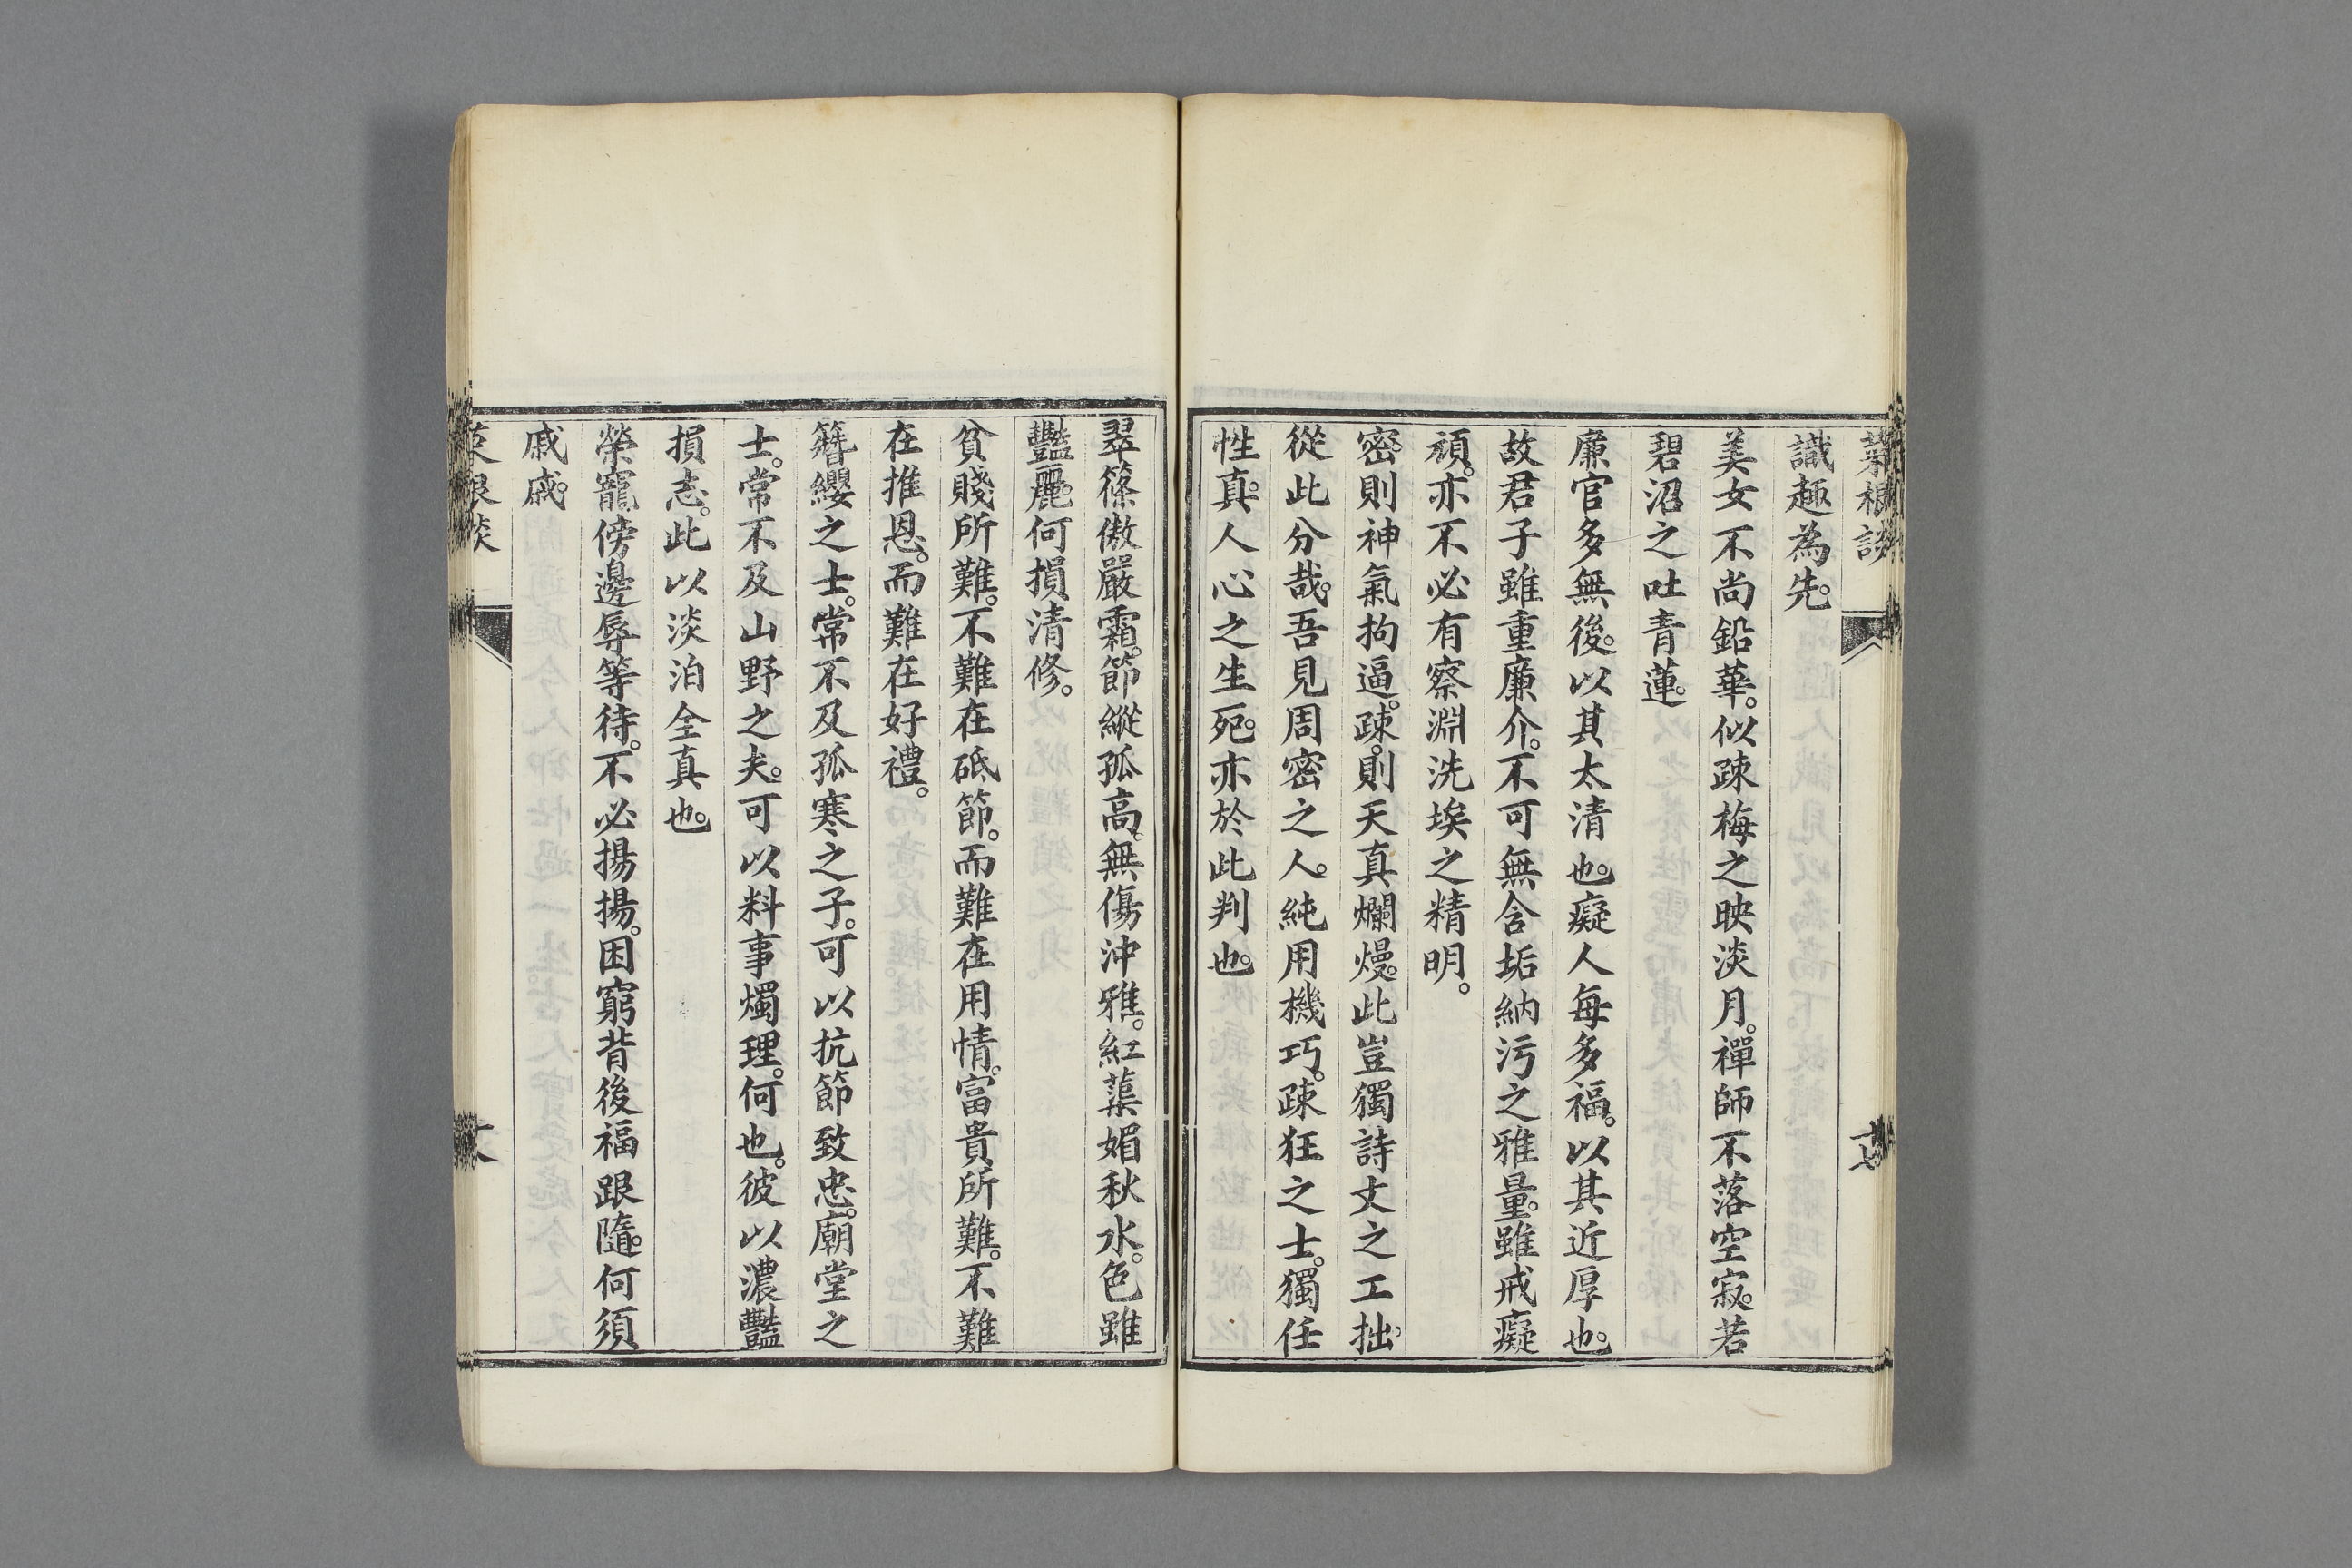 菜根談
十七
識趣為先。
美女不尚鉛華。似疎梅之映淡月。禪師不落空寂。若
碧沼之吐青蓮。
廉官多無後。以其太清也。癡人每多福。以其近厚也。
故君子雖重廉介。不可無含垢納污之雅量。雖戒癡
頑。亦不必有察淵洗埃之精明。
密。則神氣拘逼。疎。則天真爛熳。此豈獨詩文之工拙。
從此分哉。吾見周密之人。純用機巧。疎狂之士。獨任
性真。人心之生死。亦於此判也。
翠篠傲嚴霜。節縱孤高。無傷沖雅。紅蕖媚秋水。色雖
豔麗。何損清修。
貧賤所難。不難在砥節。而難在用情。富貴所難。不難
在推恩。而難在好禮。
簪纓之士。常不及孤寒之子。可以抗節致忠。廟堂之
士。常不及山野之夫。可以料事燭理。何也。彼以濃豔
損志。此以淡泊全真也。
榮寵傍邊辱等待。不必揚揚。困窮背後福跟隨。何須
戚戚。
菜根談